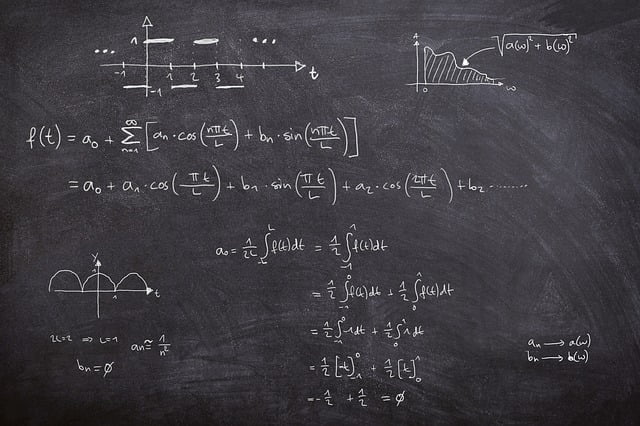 1 ... ...
-1 1 2 3 4 t
-1
A √a(ω)² + b(ω)²
0 ω
f(t) = a₀ + ∞Σn=1 [aₙ · cos(nπt/L) + bₙ · sin(nπt/L)]
= a₀ + a₁ · cos(πt/L) + b₁ · sin(πt/L) + a₂ · cos(2πt/L) + b₂ ........
a₀ = 1/2L ∫-L^L f(t)dt = 1/2 ∫-1^1 f(t)dt
= 1/2 ∫-1^0 f(t)dt + 1/2 ∫0^1 f(t)dt
= 1/2 ∫-1^0 -1dt + 1/2 ∫0^1 1dt
= 1/2 [-t]-1^0 + 1/2 [t]0^1
= -1/2 + 1/2 = ∅
y
1
1 t
2L=2 ⇒ L=1 aₙ ≅ 1/n²
bₙ = ∅
aₙ → a(ω)
bₙ → b(ω)